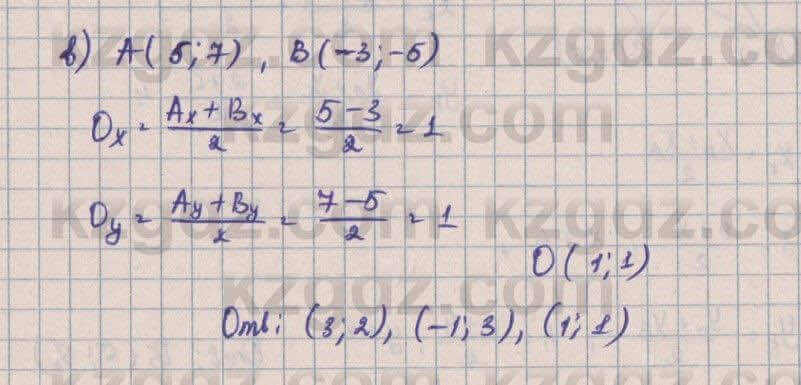 в) A(5;7), B(-3;-5)
Ox = (Ax + Bx)/2 = (5-3)/2 = 1
Oy = (Ay + By)/2 = (7-5)/2 = 1
O(1;1)
Отв: (3;2), (-1;3), (1;1)
kzgdz.com